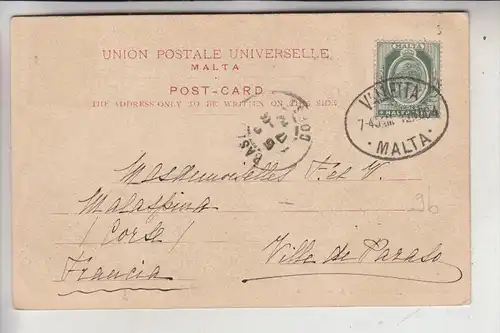 UNION POSTALE UNIVERSELLE
MALTA
POST-CARD
THE ADDRESS ONLY TO BE WRITTEN ON THIS SIDE
MALTA
HALFPENNY
VALLETTA
MALTA
BAST
Mesdemoiselles F. et V.
Malaspina
(Corse)
Ville de Paraso
Francia
96